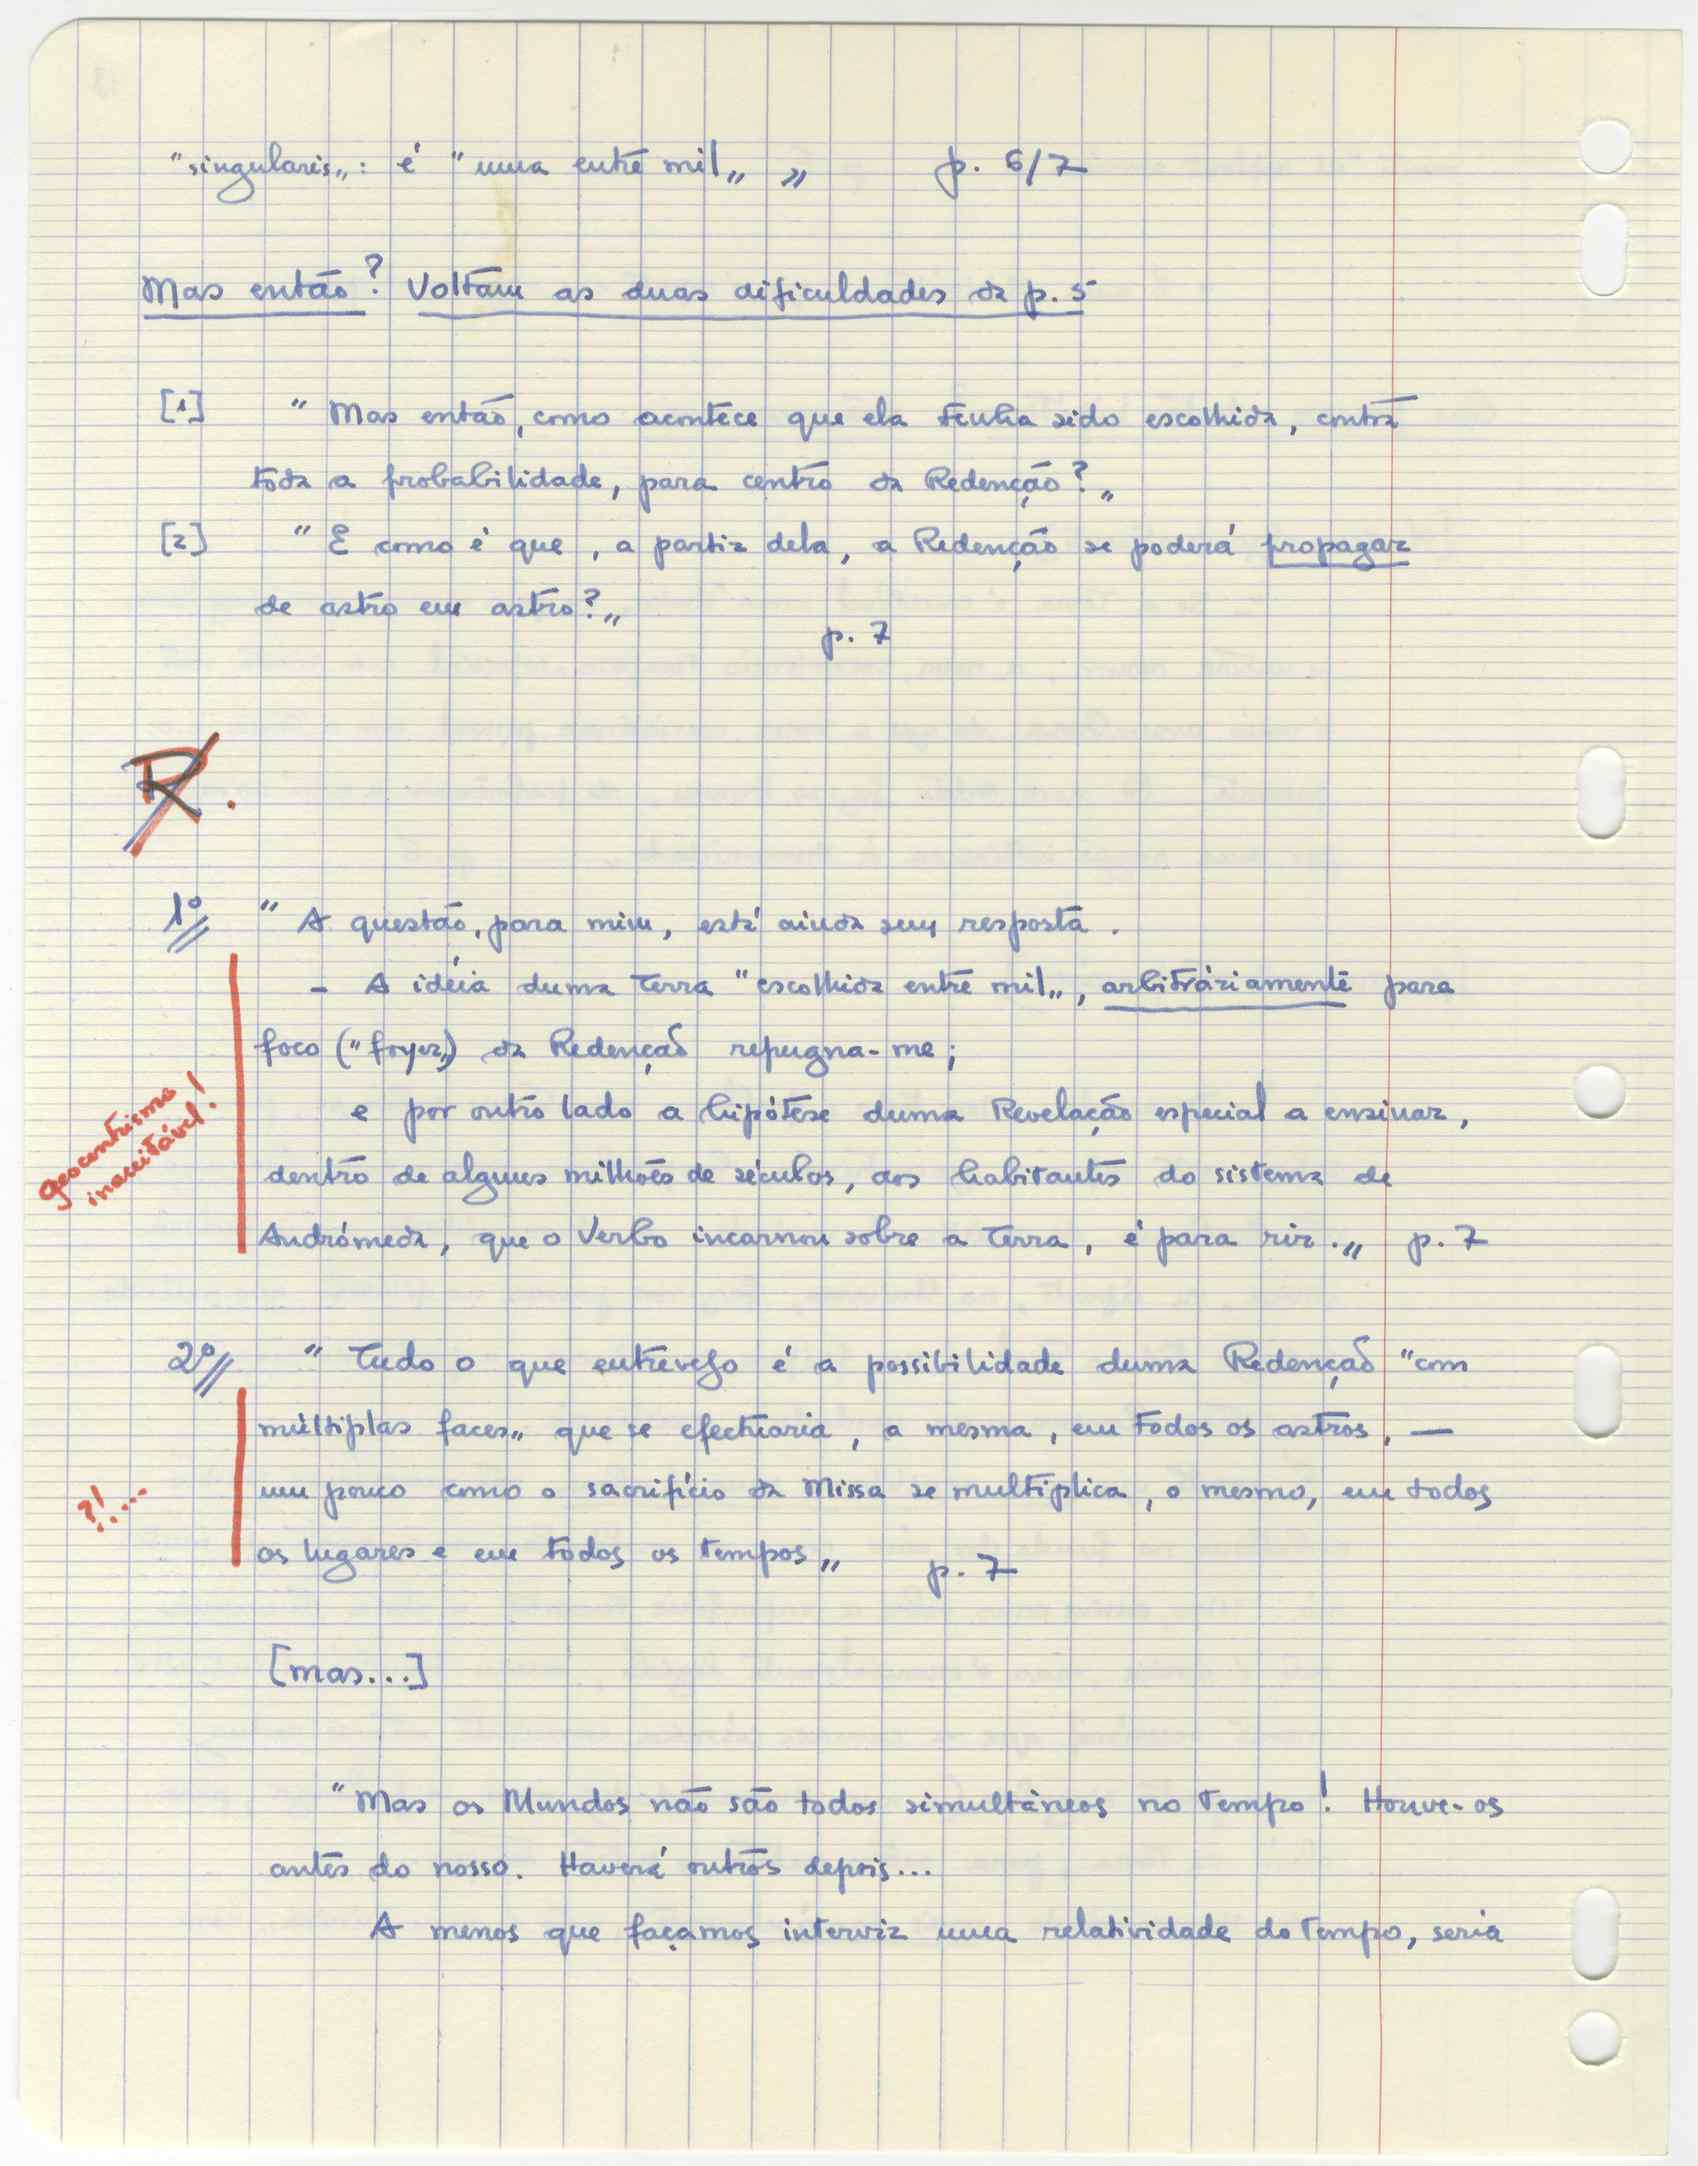 "singularis„: é "uma entre mil„ „ p. 6/7
Mas então? Voltam as duas dificuldades da p. 5
[1] "Mas então, como acontece que ela tenha sido escolhida, contra
toda a probabilidade, para centro da Redenção?„
[2] "E como é que, a partir dela, a Redenção se poderá propagar
de astro em astro?„
p. 7
R.
1º "A questão, para mim, está ainda sem resposta.
- A idéia duma Terra "escolhida entre mil„, arbitràriamente para
foco ("foyer„) da Redenção repugna-me;
e por outro lado a hipótese duma Revelação especial a ensinar,
dentro de alguns milhões de séculos, aos habitantes do sistema de
Andrómeda, que o Verbo incarnou sobre a Terra, é para rir.„ p. 7
geocentrismo
inaceitável!
2º "Tudo o que entrevejo é a possibilidade duma Redenção "com
múltiplas faces„ que se efectuaria, a mesma, em todos os astros, —
um pouco como o sacrifício da Missa se multiplica, o mesmo, em todos
os lugares e em todos os tempos„ p. 7
?!....
[mas...]
"Mas os Mundos não são todos simultâneos no Tempo! Houve-os
antes do nosso. Haverá outros depois...
A menos que façamos intervir uma relatividade do Tempo, seria